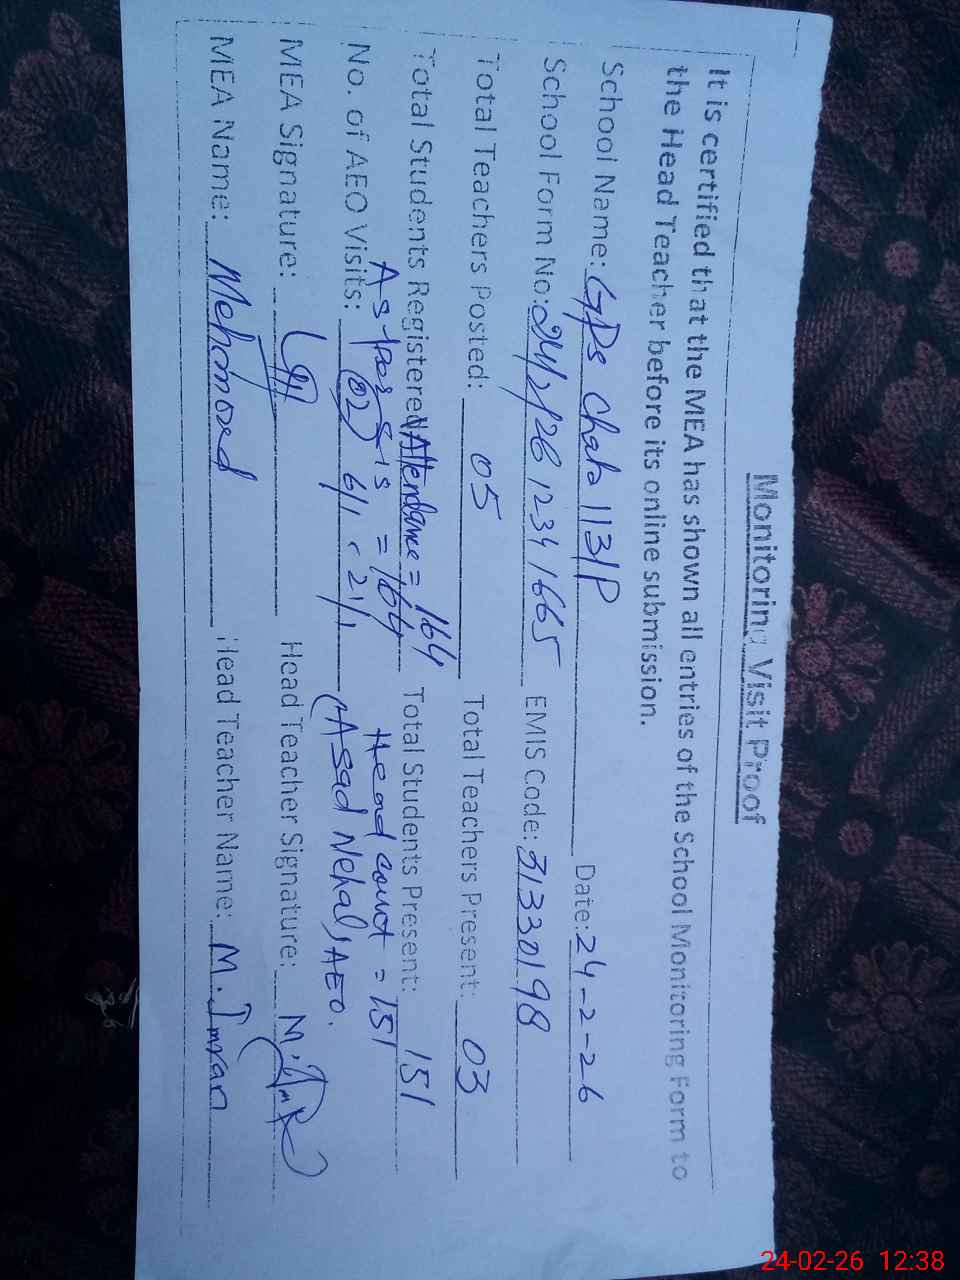 Monitoring Visit Proof
It is certified that the MEA has shown all entries of the School Monitoring Form to
the Head Teacher before its online submission.
School Name: GPS Chak 113/P Date: 24-2-26
School Form No: 24/2/26 1234 1665 EMIS Code: 31330198
Total Teachers Posted: 05 Total Teachers Present: 03
Total Students Registered Attendance = 164 Total Students Present: 151
As per sis = 164 Head count = 151
No. of AEO Visits: (02) 6/1, 21/1 (Asad Nehal, AEO.
MEA Signature: Head Teacher Signature: M.
MEA Name: Mehmood Head Teacher Name: M. Imran
24-02-26 12:38